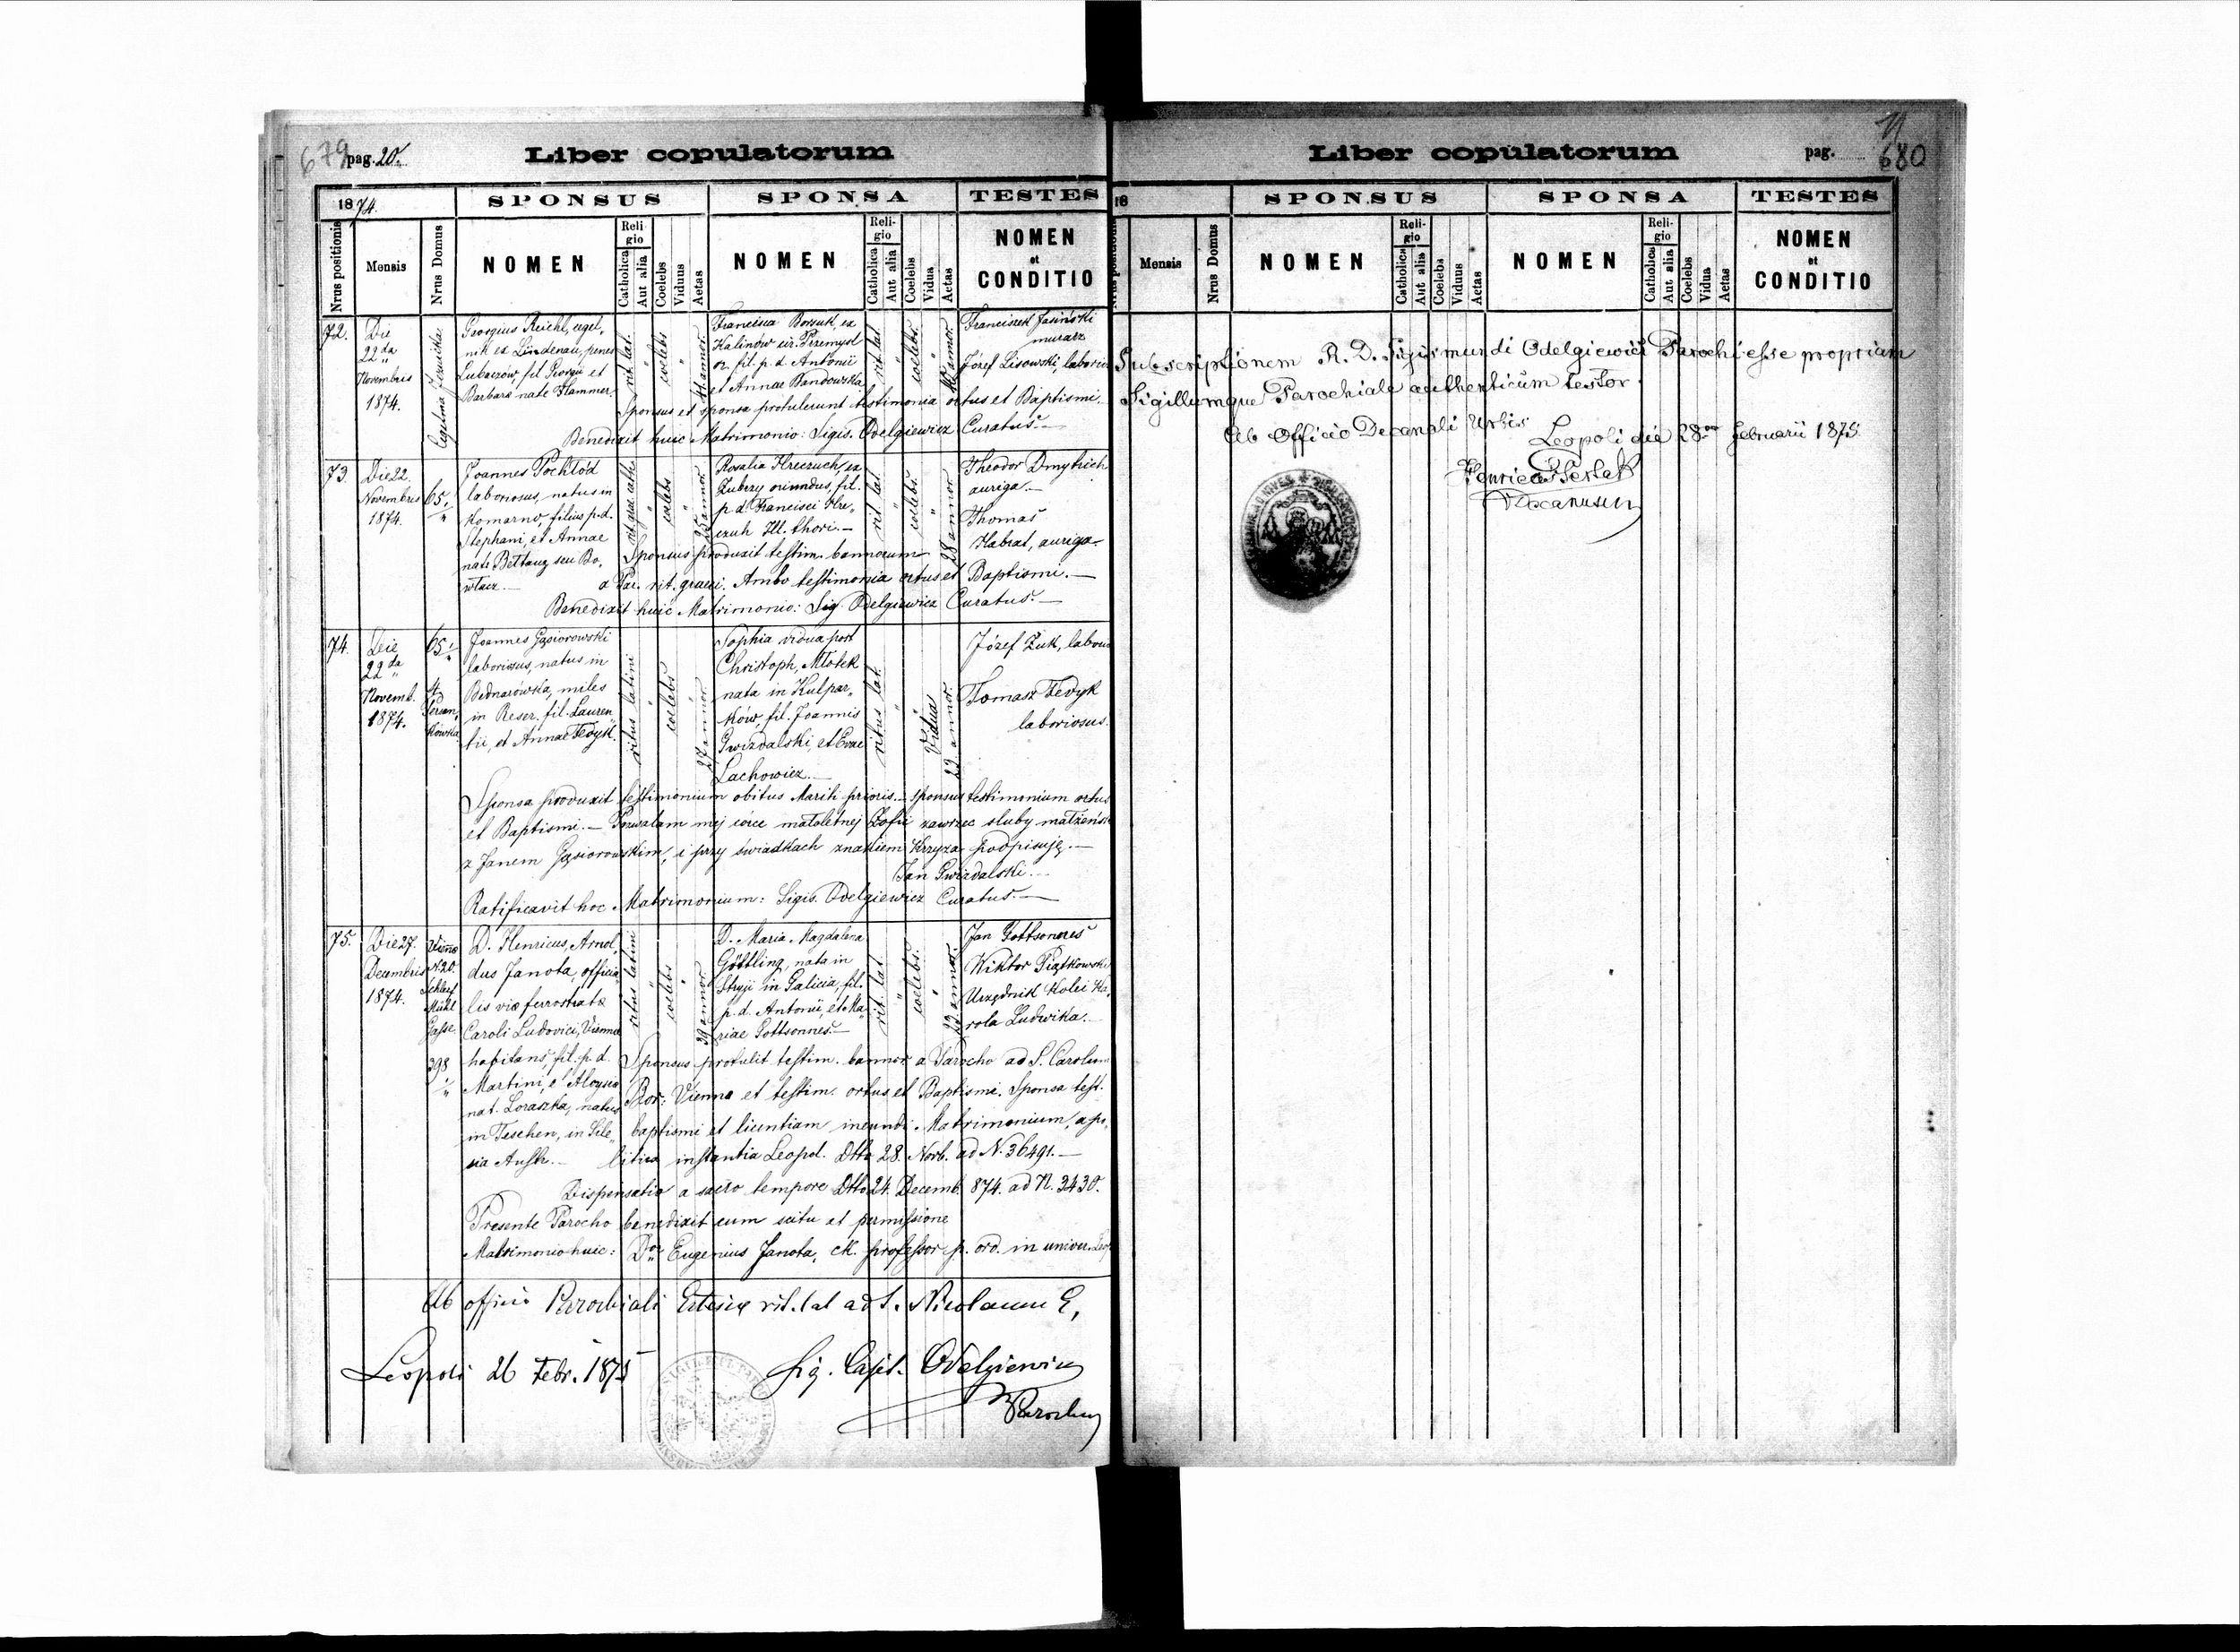 679 pag. 20.
Liber copulatorum
1874.
SPONSUS
SPONSA
TESTES
Nrus positionis
Mensis
Nrus Domus
NOMEN
Religio
Catholica
Aut alia
Coelebs
Viduus
Aetas
NOMEN
Religio
Catholica
Aut alia
Coelebs
Vidua
Aetas
NOMEN
et
CONDITIO
72.
Die
22da
Novembris
1874.
Georgius Reichl, cegel,
nik ex Lindenau, penes
Lubaczów, fil. Georgii et
Barbara nate Hammer.
rit. lat.
coelebs
Francisca Borsuk, ex
Kalinow cir. Przemysl
or. fil. p. d. Antonii
et Annae Bandowska
rit. lat.
coelebs.
Franciszek Jasiński
murarz
Józef Lisowski, laborio
Sponsus et sponsa protulerunt testimonia ortus et Baptismi.
Benedixit huic Matrimonio: Sigis. Odelgiewicz Curatus.—
73.
Die 22.
Novembris
1874.
65.
Joannes Pochłód
laboriosus, natus in
Komarno, filius p. d.
Stephani, et Annae
nate Bettang seu Bo,
włacz.—
coelebs
25 annor.
Rosalia Hreczuch, ex
Zubrzy oriundus, fil.
p. d. Francisci Hre,
czuh Ill. thori.—
rit. lat.
coelebs.
28 annor.
Theodor Dmytrich
auriga.—
Thomas
Habrat, auriga.
Sponsus produxit testim. bannorum
a Par. rit. graeci. Ambo testimonia ortus et Baptismi.—
Benedixit huic Matrimonio: Sig. Odelgiewicz Curatus.—
74.
Die
22da
Novemb.
1874.
65.
4
Persen,
kówka
Joannes Gąsiorowski
laboriosus, natus in
Bednarówka, miles
in Reser. fil. Lauren
tii, et Annae Fedyk.
ritus latini
coelebs
27 annor.
Sophia vidua post
Christoph, Młotek
nata in Kulpar,
ków, fil. Joannis
Gwizdalski, et Evae
Lachowicz.—
ritus lat.
Vidua
22 annor.
Józef Żuk, labori
Tomasz Fedyk
laboriosus.
Sponsa produxit testimonium obitus Mariti prioris.— sponsus testimonium ortus
et Baptismi.— Pozwalam mej córce małoletnej Zofii zawrzec sluby małżeńsk
z Janem Gąsiorowskim, i przy świadkach znakiem Krzyża podpisuję.—
Jan Gwizdalski.—
Ratificavit hoc Matrimonium: Sigis. Odelgiewicz Curatus.—
75.
Die 27.
Decembris
1874.
Vienna
N. 20.
Schleif
Mühl
Gasse.
398
D. Henricus, Arnol,
dus Janota, officia
lis viae ferrostratae
Caroli Ludovici, Viennae
habitans, fil. p. d.
Martini, e' Aloysia
nat. Loraszka, natus
in Teschen, in Sile,
sia Austr.—
ritus latini
coelebs
39 annor.
D. Maria Magdalena
Göttling, nata in
Stryji in Galicia, fil.
p. d. Antonii, et Ma
riae Gottsonnes.—
rit. lat.
coelebs.
22 annor.
Jan Gottsonnes
Wiktor Piątkowski
Urzędnik Kolei Ka,
rola Ludwika.—
Sponsus protulit testim. bannor. a Parocho ad S. Carolum
Bor: Vienna et testim. ortus et Baptismi. Sponsa test.
baptismi et licentiam ineundi Matrimonium, a po,
litica instantia Leopol. Dtto 28. Novb. ad N. 36491.—
Dispensatio a sacro tempore Dtto 24. Decemb. 874. ad N. 3430.
Presente Parocho benedixit cum scitu et permissione
Matrimonio huic: Dor Eugenius Janota, ck. professor p. ord. in univer. Leop
Ab officio Parochiali Eclesiæ rit. lat ad S. Nicolaum E,
Leopoli 26 Febr. 1875
Sig. Capit. Odelgiewicz
Parochus
Liber copulatorum
pag.
680
18
SPONSUS
SPONSA
TESTES
Nrus positionis
Mensis
Nrus Domus
NOMEN
Religio
Catholica
Aut alia
Coelebs
Viduus
Aetas
NOMEN
Religio
Catholica
Aut alia
Coelebs
Vidua
Aetas
NOMEN
et
CONDITIO
Subscriptionem R. D. Sigismundi Odelgiewicz Parochi esse propriam
Sigillumque Parochiale authenticum testor.
Ab Officio Decanali Urbis
Leopoli die 28va Februarii 1875
Decanus